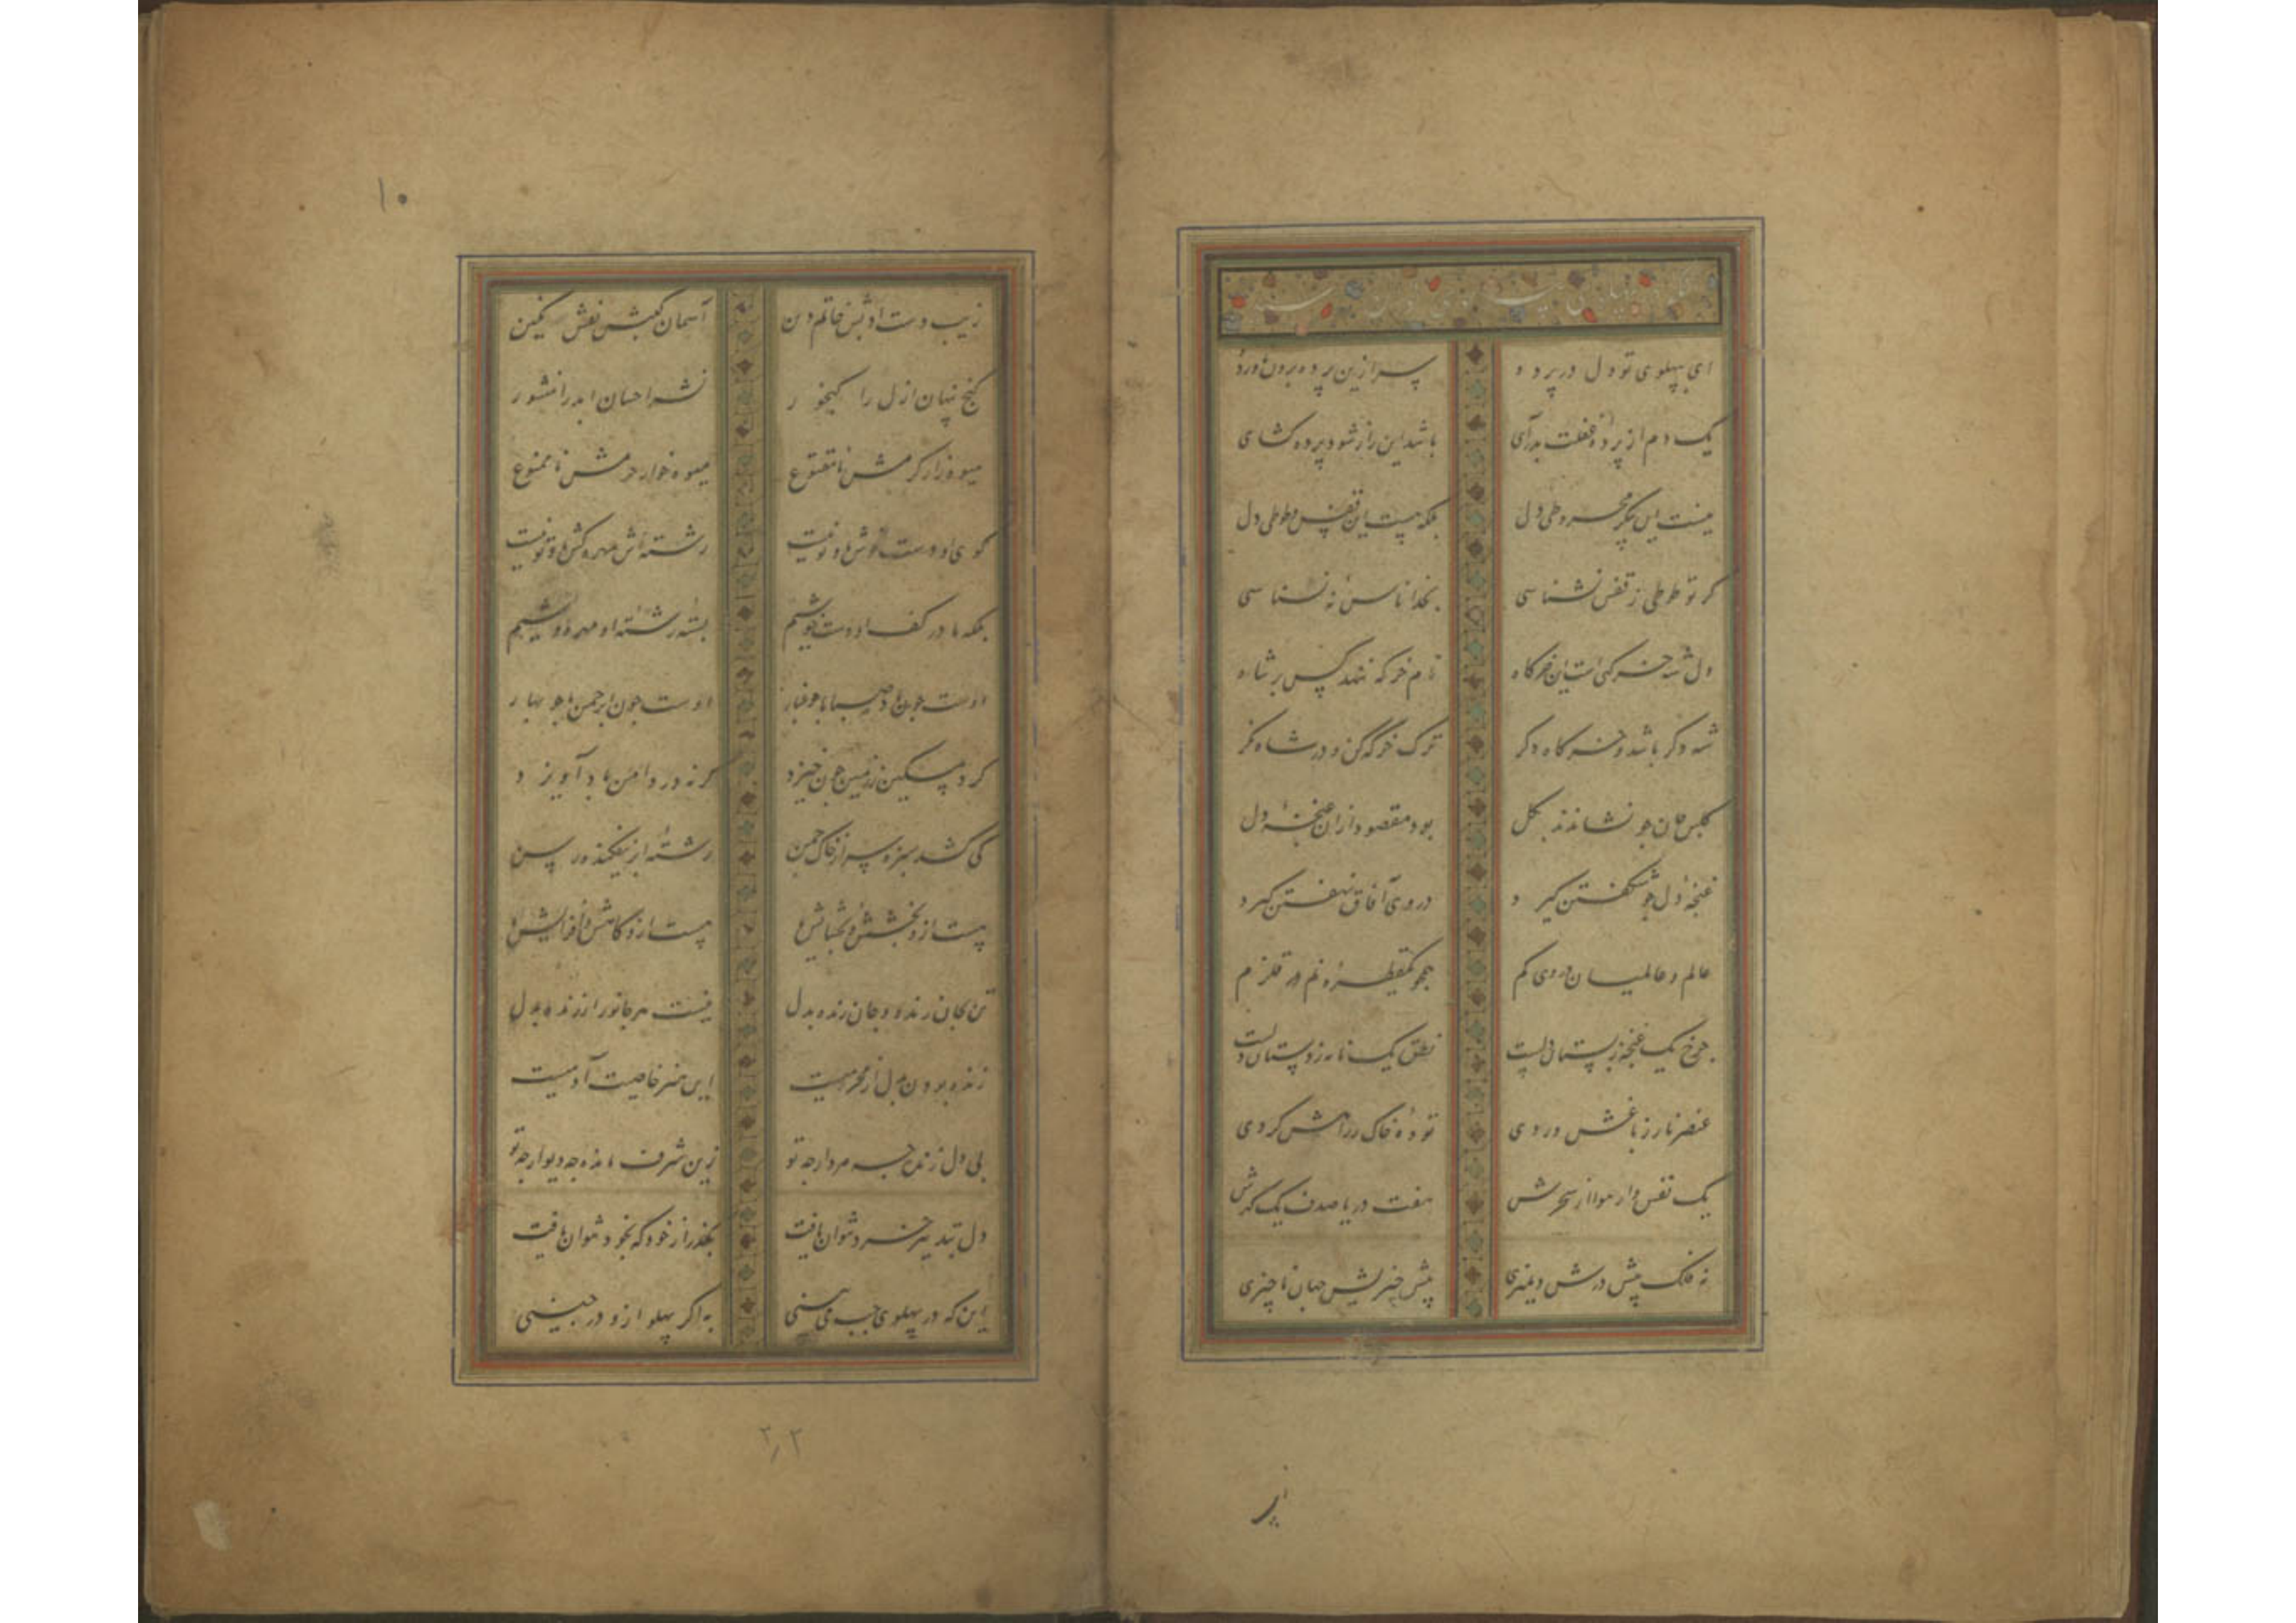 ای بپهلوی تو دل در پرده سر ازین پرده برون آورده
یک دم از پرده غفلت بدر آی باشد این راز شود پرده کشای
نیست این پیکر مخروطی دل بلکه هست این قفس و طوطی دل
کر تو طوطی ز قفس نشناسی بخدا ناس نه نسناسی
دل شه خرکهی است این خرکاه نام خرکه ننهد کس بر شاه
شه دکر باشد و خرکاه دکر ترک خرکه کن و در شاه نکر
کلبن جان چو نشاندند بکل بود مقصود ازان غنچه دل
غنچه دل چو شکفتن کیرد در وی آفاق نهفتن کیرد
عالم و عالمیان در وی کم همچو یک قطره نم در قلزم
چرخ یک غنچه ز بستان دلست نطق یک نامه ز دستان دلست
عنصر نار ز باغش وردی توده خاک ز راهش کردی
یک نفس وار هوا از سحرش هفت دریا صدف یک کهرش
نه فلک پیش درش دهلیزی پیش چیزیش جهان ناچیزی
زیب دست او بس خاتم دن آسمان نقش نکین
کنج پنهان ازل را کنجور نشر احسان ابد را منشور
میوه زار کرمش نامقطوع میوه خوار حرمش ناممنوع
کوی او دست خوش اوییت رشته اش مهره کش اوییت
بلکه ما در کف او دست خوشیم بسته رشته او مهره وشیم
اوست چون باد صبا ما چو غبار اوست چون ابر چمن ما چو بهار
کرد مسکین ز زمین چون خیزد کر نه در دامن باد آویزد
کی کشد سبزه سر از خاک چمن رشته ابر نیفکنده رسن
هست ازو بخشش و بخشایش ما هست ازو کاهش و افزایش ما
تن بجان زنده و جان زنده بدل نیست هر جانور ارزنده بدل
زنده بودن بدل از محرمیست این هنر خاصیت آدمیست
بی دل زنده چه مردار چه تو زین شرف مانده چه دیوار چه تو
دل بتدبیر خرد نتوان یافت بکذر از خود که بخود نتوان یافت
این که در پهلوی چپ می بینی به اکر پهلو ازو در چینی
۱۰